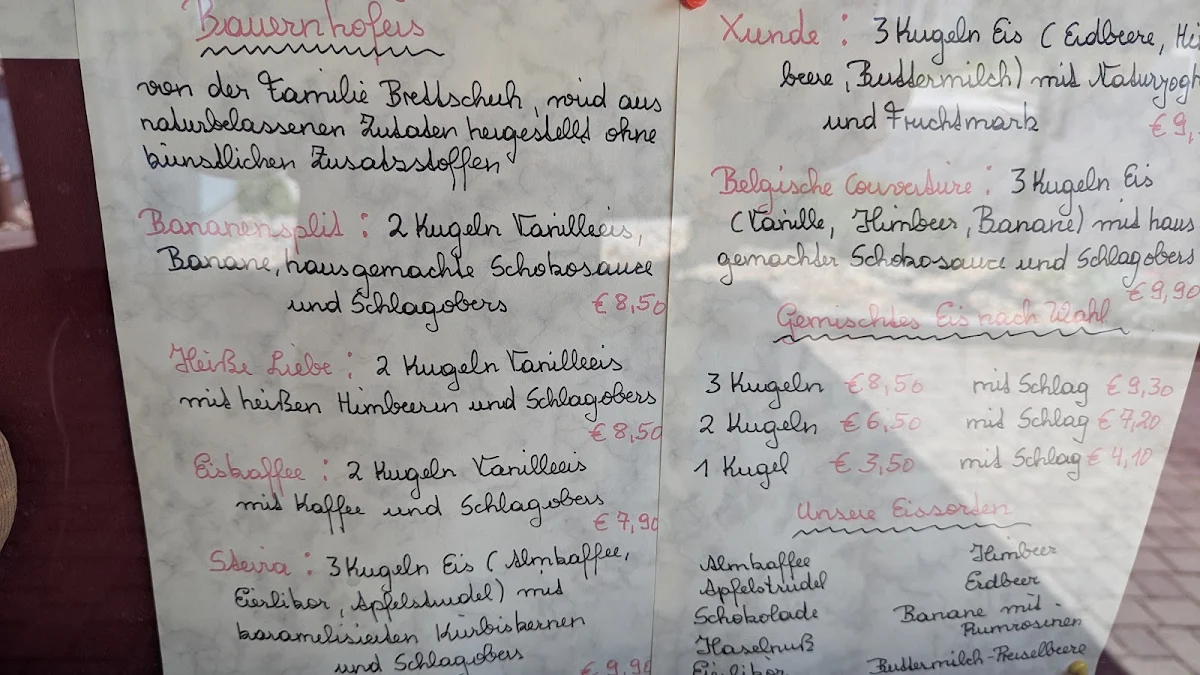 Bauernhofeis
von der Familie Brettschuh, wird aus
naturbelassenen Zutaten hergestellt ohne
künstlichen Zusatzstoffen
Bananensplit : 2 Kugeln Vanilleeis,
Banane, hausgemachte Schokosauce
und Schlagobers € 8,50
Heiße Liebe : 2 Kugeln Vanilleeis
mit heißen Himbeerin und Schlagobers
€ 8,50
Eiskaffee : 2 Kugeln Vanilleeis
mit Kaffee und Schlagobers
€ 7,90
Steira : 3 Kugeln Eis ( Almkaffee,
Eierlikör, Apfelstrudel) mit
karamelisierten Kürbiskernen
und Schlagobers
€ 9,90
Xunde : 3 Kugeln Eis ( Erdbeere, Him
beere, Buttermilch) mit Naturjogh
und Fruchtmark € 9,
Belgische Couverture : 3 Kugeln Eis
(Vanille, Himbeer, Banane) mit haus
gemachter Schokosauce und Schlagobers
€ 9,90
Gemischtes Eis nach Wahl
3 Kugeln € 8,50 mit Schlag € 9,30
2 Kugeln € 6,50 mit Schlag € 7,20
1 Kugel € 3,50 mit Schlag € 4,10
Unsere Eissorten
Almkaffee Himbeer
Apfelstrudel Erdbeer
Schokolade Banane mit
Rumrosinen
Haselnuß
Eierlikör Buttermilch-Preiselbeere